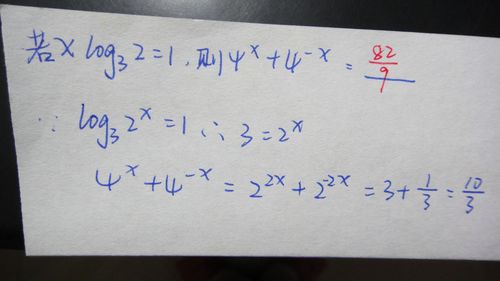 若xlog₃2=1,则4ˣ+4⁻ˣ=82/9
∵log₃2ˣ=1∴3=2ˣ
4ˣ+4⁻ˣ=2²ˣ+2⁻²ˣ=3+1/3=10/3